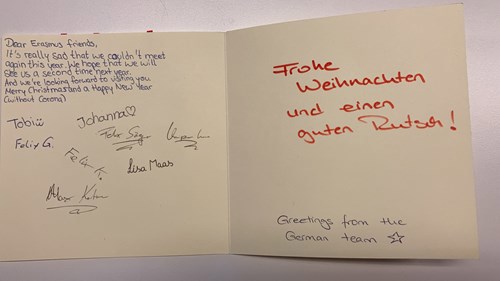 Dear Erasmus friends,
It's really sad that we couldn't meet
again this year. We hope that we will
see us a second time next year.
And we're looking forward to visiting you
Merry Christmas and a Happy New Year
(without Corona)
Tobi
Johanna♡
Felix G.
Felix
Felix
Lisa Maas
Frohe
Weihnachten
und einen
guten Rutsch!
Greetings from the
German team ☆